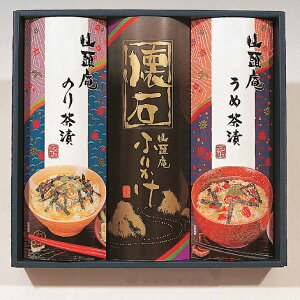 山頭庵
のり茶漬
懐石
山頭庵
ふりかけ
山頭庵
うめ茶漬